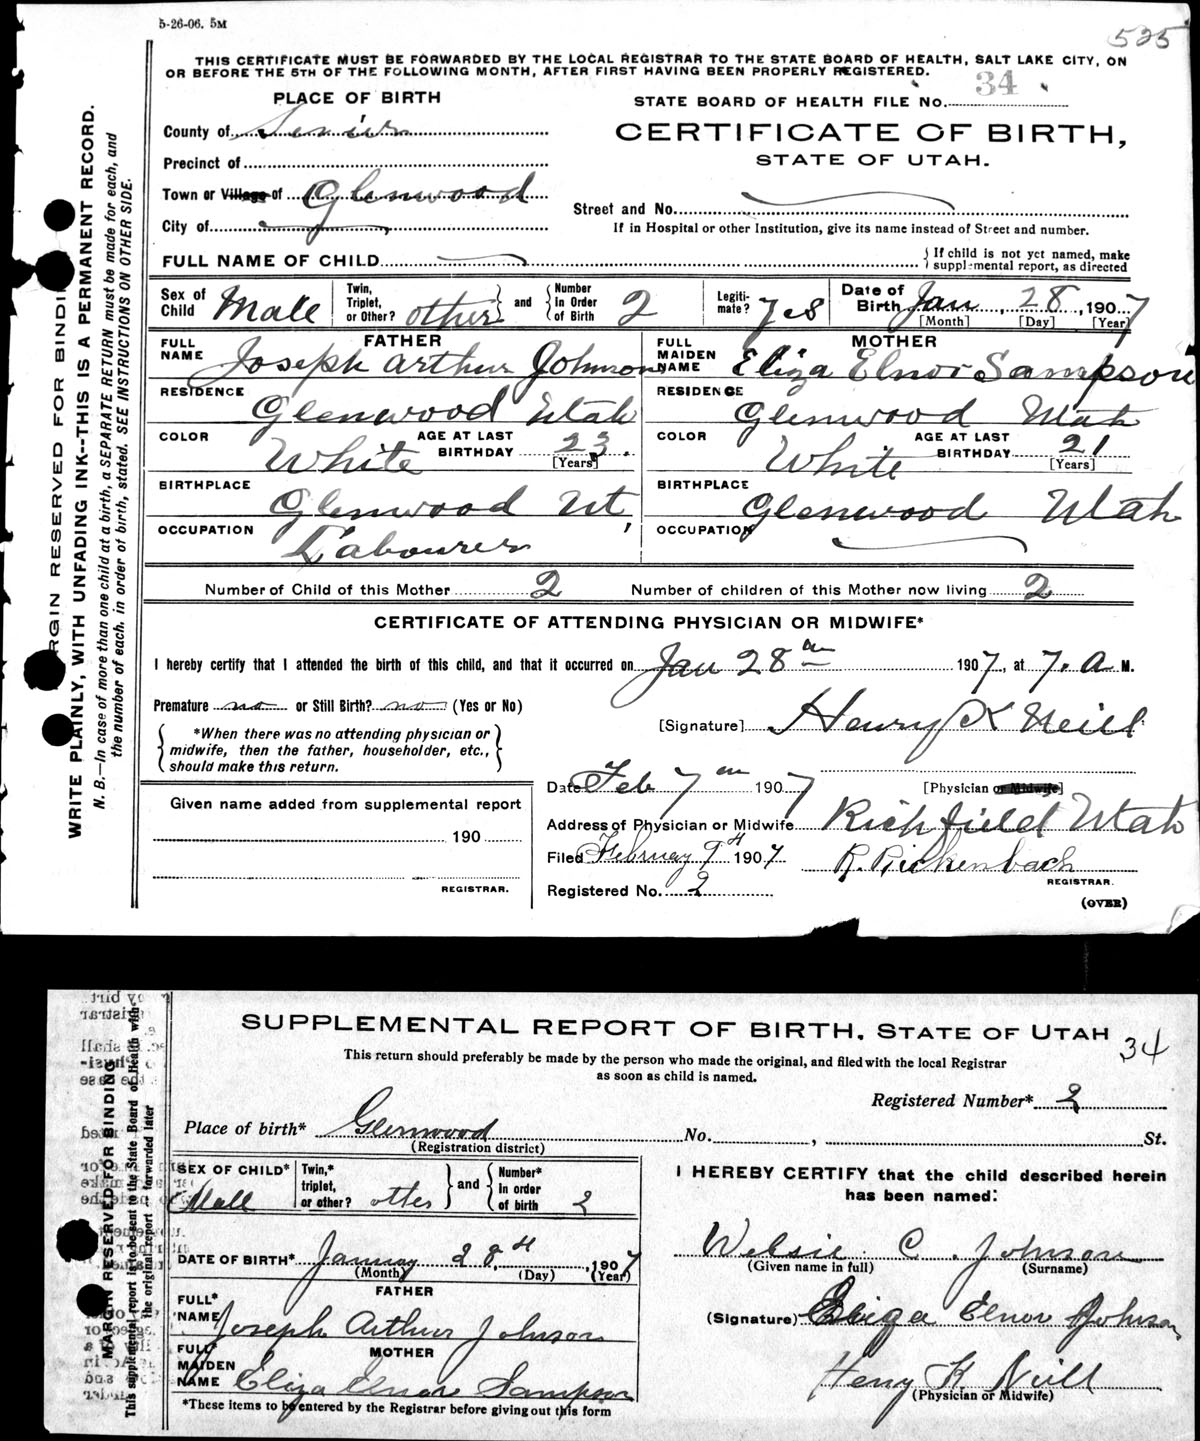 5-26-06. 5M
525
THIS CERTIFICATE MUST BE FORWARDED BY THE LOCAL REGISTRAR TO THE STATE BOARD OF HEALTH, SALT LAKE CITY, ON
OR BEFORE THE 5TH OF THE FOLLOWING MONTH, AFTER FIRST HAVING BEEN PROPERLY REGISTERED.
PLACE OF BIRTH
STATE BOARD OF HEALTH FILE No. 34
County of Sevier
CERTIFICATE OF BIRTH,
Precinct of
STATE OF UTAH.
Town or Village of Glenwood
Street and No.
City of
If in Hospital or other Institution, give its name instead of Street and number.
FULL NAME OF CHILD
{If child is not yet named, make
supplemental report, as directed
Sex of Child Male
Twin, Triplet, or Other? other
and
Number in Order of Birth 2
Legiti- mate? Yes
Date of Birth Jan 28, 1907
[Month] [Day] [Year]
FATHER
FULL NAME Joseph Arthur Johnson
MOTHER
FULL MAIDEN NAME Eliza Elnor Sampson
RESIDENCE Glenwood Utah
RESIDENCE Glenwood Utah
COLOR White AGE AT LAST BIRTHDAY 23. [Years]
COLOR White AGE AT LAST BIRTHDAY 21 [Years]
BIRTHPLACE Glenwood Ut,
BIRTHPLACE Glenwood Utah
OCCUPATION Labourer
OCCUPATION
Number of Child of this Mother 2 Number of children of this Mother now living 2
CERTIFICATE OF ATTENDING PHYSICIAN OR MIDWIFE*
I hereby certify that I attended the birth of this child, and that it occurred on Jan 28 1907, at 7. A M.
Premature no or Still Birth? no (Yes or No)
[Signature] Henry K Neill
{*When there was no attending physician or
midwife, then the father, householder, etc.,
should make this return.}
Date Feb 7 1907
[Physician or Midwife]
Given name added from supplemental report
190
REGISTRAR.
Address of Physician or Midwife Richfield Utah
Filed February 9 1907 R. Rickenbach
REGISTRAR.
Registered No. 2
(OVER)
MARGIN RESERVED FOR BINDING
WRITE PLAINLY, WITH UNFADING INK--THIS IS A PERMANENT RECORD.
N. B.—In case of more than one child at a birth, a SEPARATE RETURN must be made for each, and
the number of each, in order of birth, stated. SEE INSTRUCTIONS ON OTHER SIDE.
SUPPLEMENTAL REPORT OF BIRTH, STATE OF UTAH
34
This return should preferably be made by the person who made the original, and filed with the local Registrar
as soon as child is named.
Registered Number* 2
Place of birth* Glenwood No. , St.
(Registration district)
SEX OF CHILD* Male
Twin,* triplet, or other? other
and
Number* in order of birth 2
I HEREBY CERTIFY that the child described herein
has been named:
DATE OF BIRTH* January 28 , 1907
(Month) (Day) (Year)
Welsie C. Johnson
(Given name in full) (Surname)
FATHER
FULL* NAME Joseph Arthur Johnson
(Signature) Eliza Elnor Johnson
MOTHER
FULL* MAIDEN NAME Eliza Elnor Sampson
Henry K. Neill
(Physician or Midwife)
*These items to be entered by the Registrar before giving out this form
MARGIN RESERVED FOR BINDING
This supplemental report is to be sent to the State Board of Health with
the original report if forwarded later